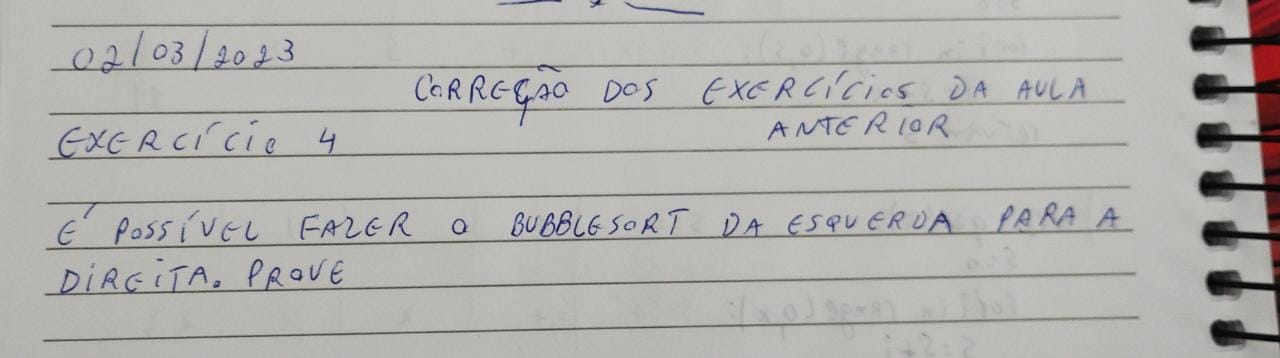 02/03/2023
CORREÇÃO DOS EXERCÍCIOS DA AULA
ANTERIOR
EXERCÍCIO 4
É POSSÍVEL FAZER O BUBBLESORT DA ESQUERDA PARA A
DIREITA. PROVE